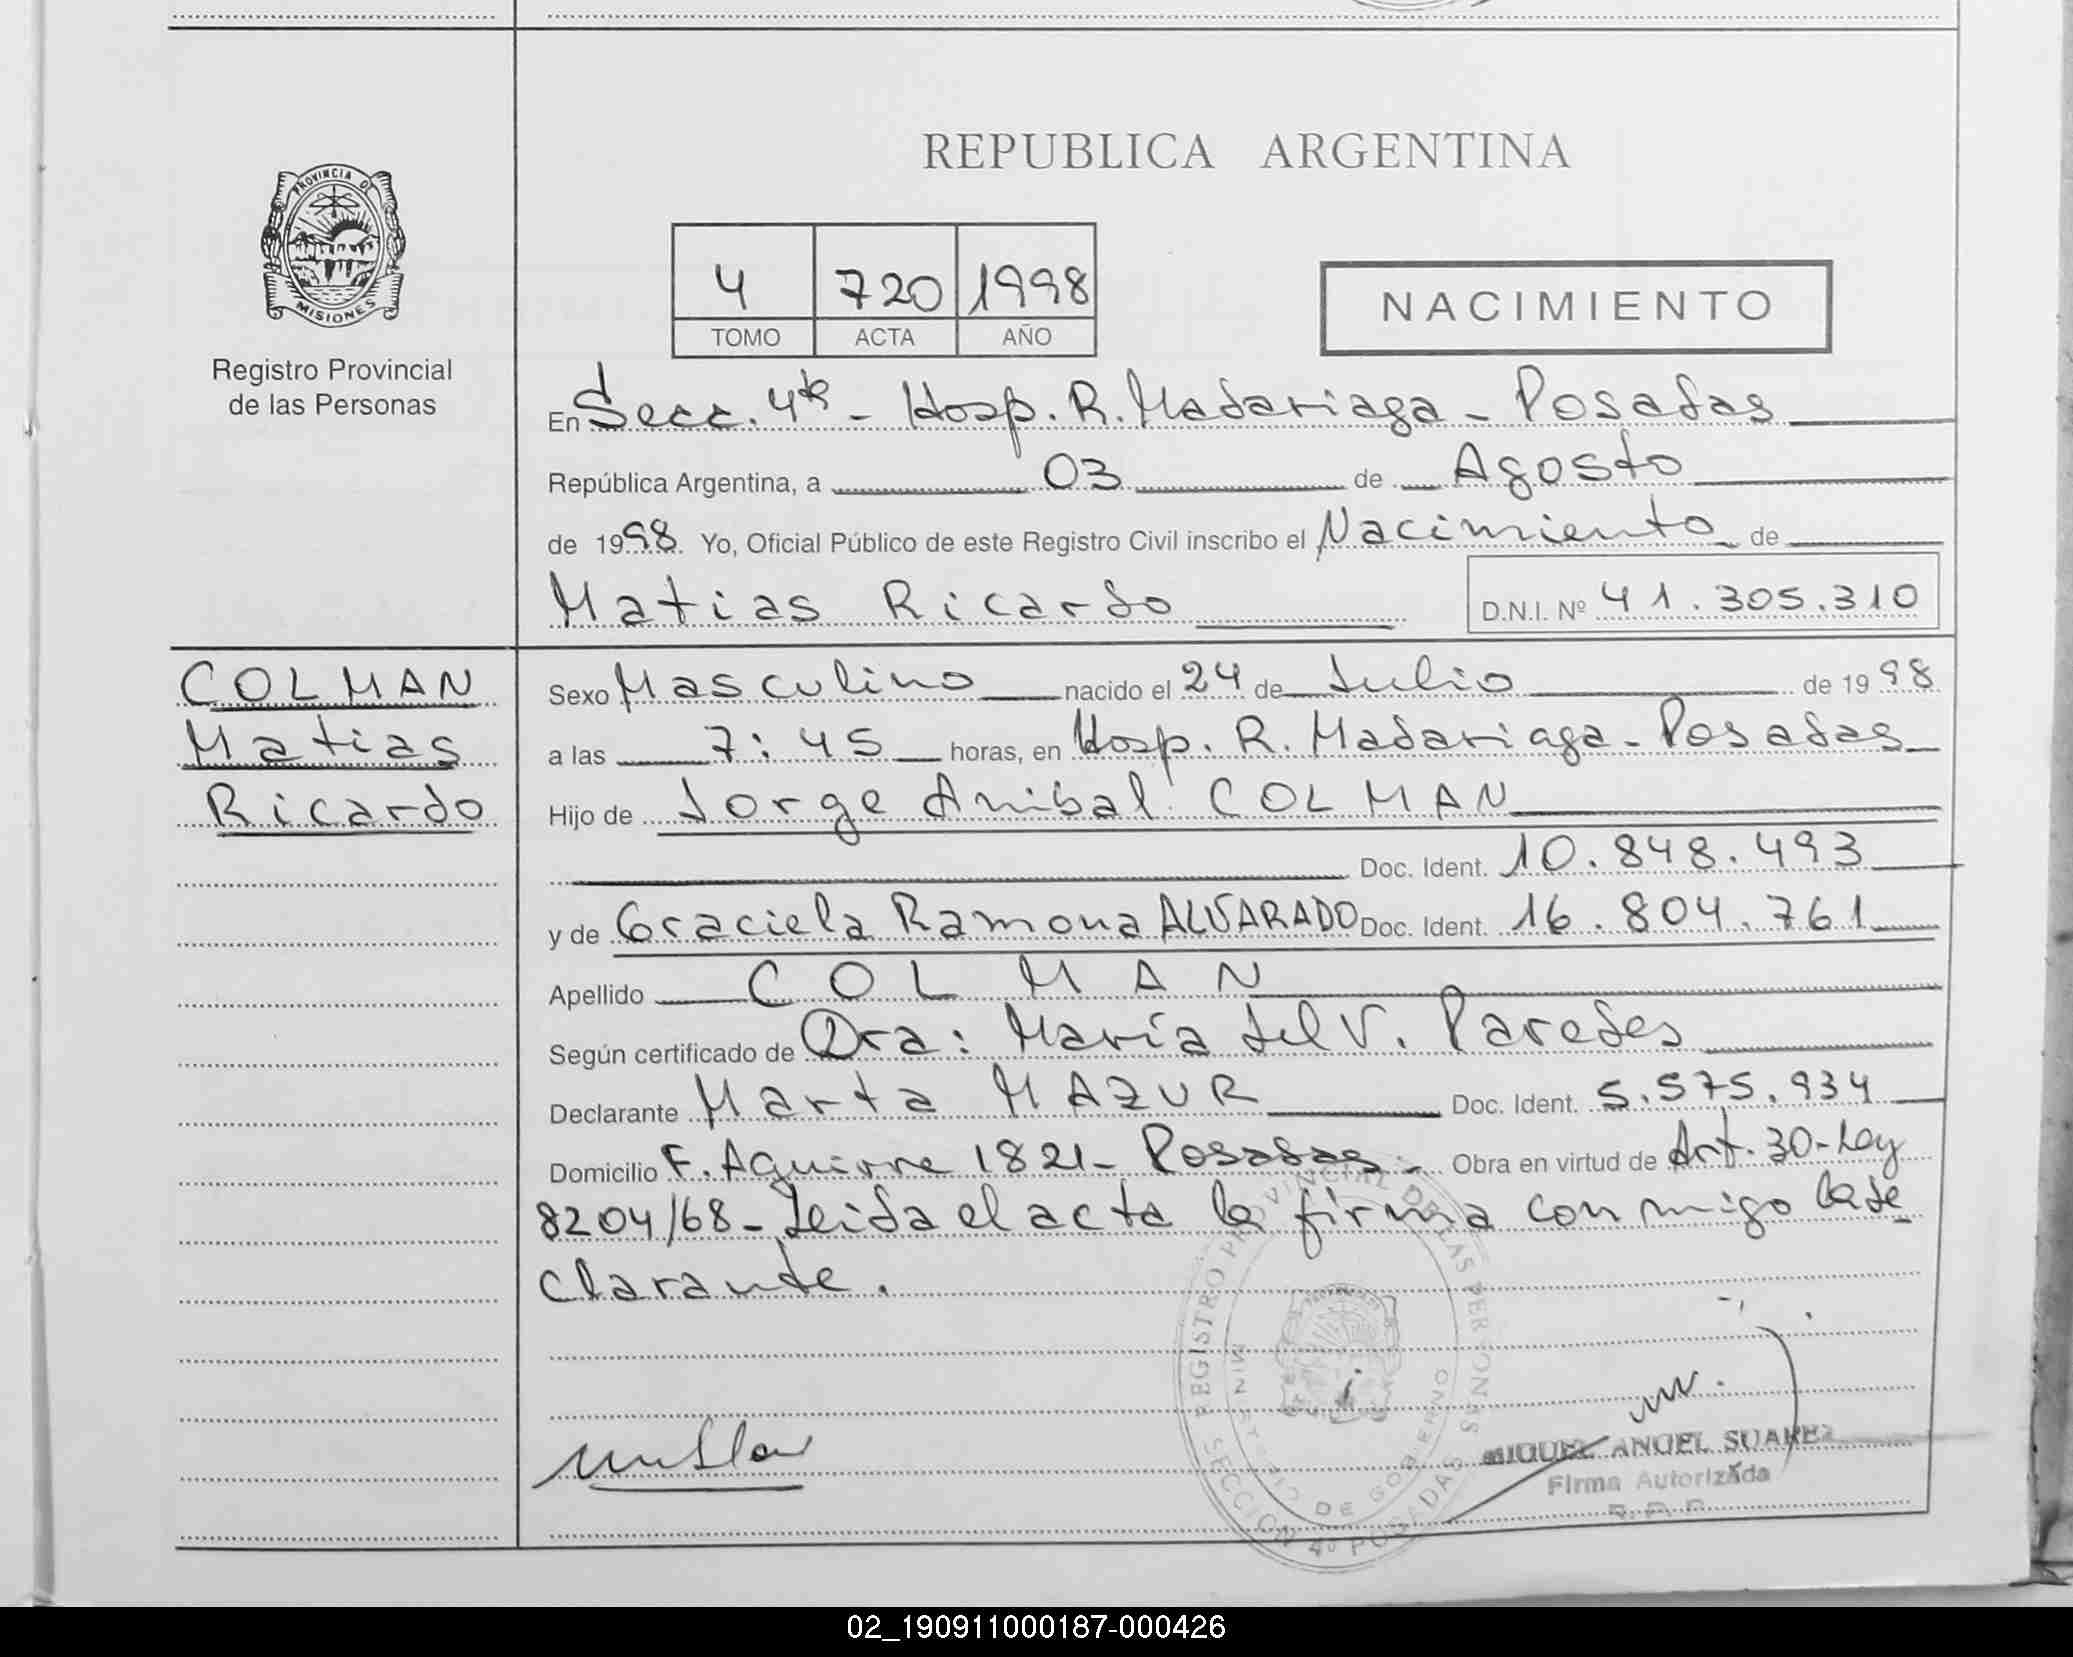 PROVINCIA DE
MISIONES
Registro Provincial
de las Personas
REPUBLICA ARGENTINA
4 720 1998
TOMO ACTA AÑO
NACIMIENTO
En Secc. 4ta - Hosp. R. Madariaga - Posadas
República Argentina, a 03 de Agosto
de 1998. Yo, Oficial Público de este Registro Civil inscribo el Nacimiento de
Matias Ricardo D.N.I. Nº 41.305.310
COLMAN
Matias
Ricardo
Sexo Masculino nacido el 24 de Julio de 1998
a las 7:45 horas, en Hosp. R. Madariaga - Posadas
Hijo de Jorge Anibal COLMAN
Doc. Ident. 10.848.493
y de Graciela Ramona ALVARADO Doc. Ident. 16.804.761
Apellido COLMAN
Según certificado de Dra: María del V. Paredes
Declarante Marta MAZUR Doc. Ident. 5.575.934
Domicilio F. Aguirre 1821 - Posadas - Obra en virtud de Art. 30 - Ley
8204/68 - Leida el acta la firma conmigo la de
clarante.
REGISTRO PROVINCIAL DE LAS PERSONAS
MINISTERIO DE GOBIERNO
SECCION 4º POSADAS
MIGUEL ANGEL SUAREZ
Firma Autorizada
02_190911000187-000426